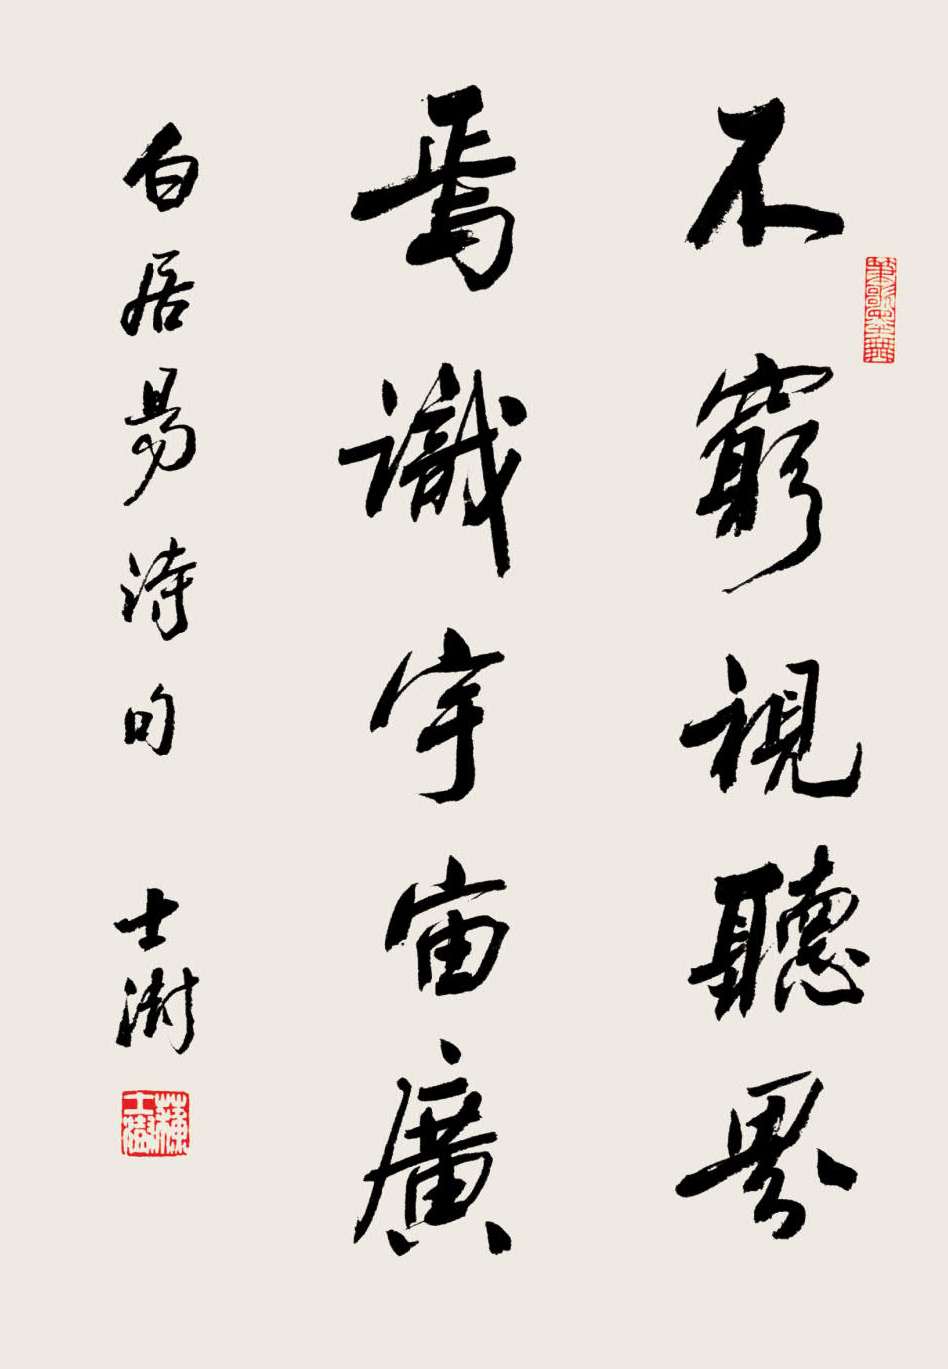 不窮視聽界
焉識宇宙廣
白居易詩句 士澍
蘇士澍